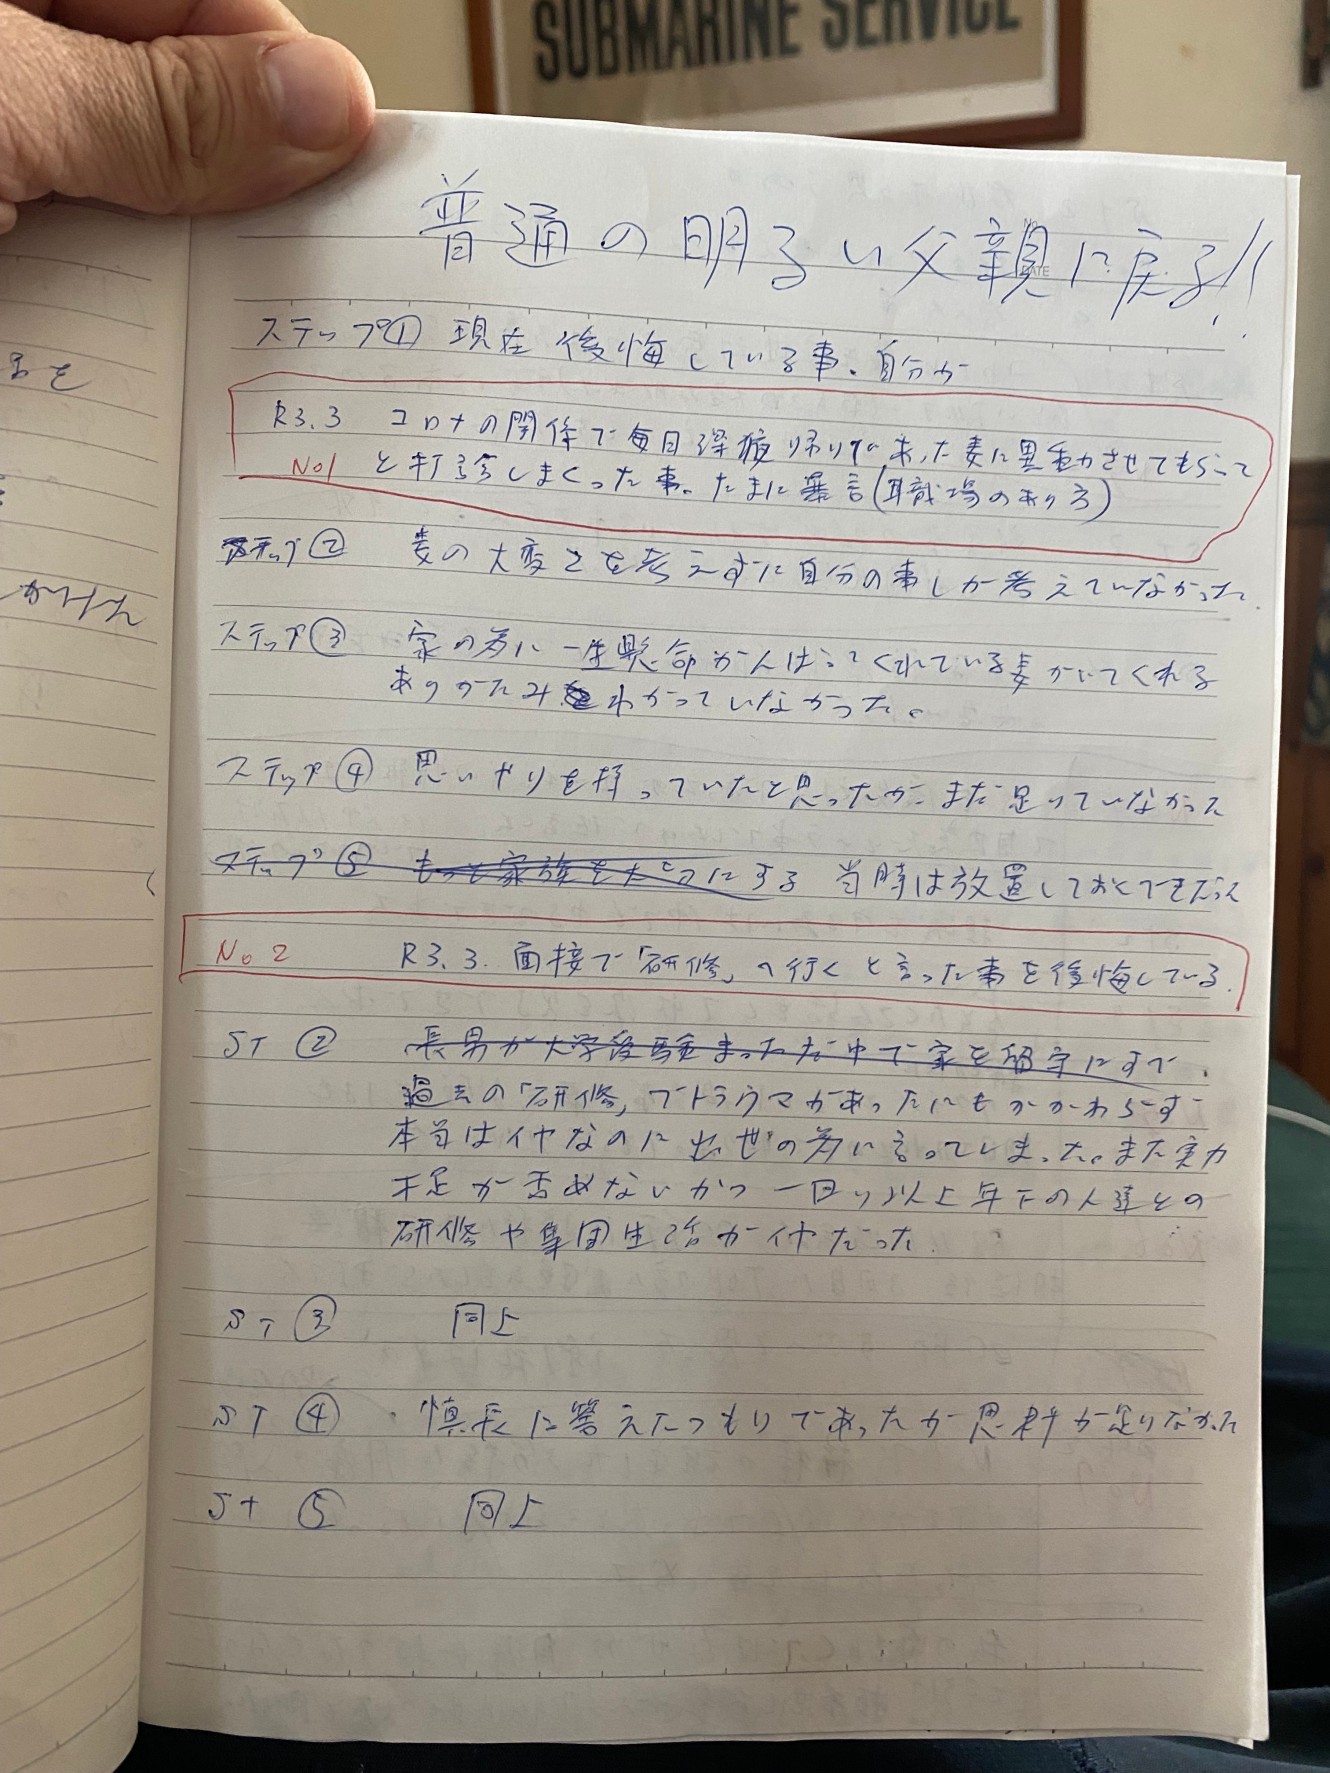 SUBMARINE SERVICE
普通の明るい父親に戻る!!
No.
DATE
ステップ① 現在後悔している事。自分が
R3.3 コロナの関係で毎日深夜帰りであった妻に異動させてもらって
No1 と打診しまくった事。たまに暴言(職場のあり方)
ステップ② 妻の大変さを考えずに自分の事しか考えていなかった。
ステップ③ 家の為に一生懸命がんばってくれている妻がいてくれる
ありがたみをわかっていなかった。
ステップ④ 思いやりを持っていたと思ったが、まだ足りていなかった
ステップ⑤ もっと家族を大切にする 当時は放置しておくべきだった
No2 R3.3. 面接で「研修」へ行くと言った事を後悔している。
ST② 長男が大学受験まっただ中で家を留守にすて
過去の「研修」でトラウマがあったにもかかわらず
本当はイヤなのに出世の為に言ってしまった。また実力
不足が否めないかつ一回り以上年下の人達との
研修や集団生活がイヤだった。
ST③ 同上
ST④ 慎長に答えたつもりであったが思料が足りなかった
ST⑤ 同上
まを
かけん